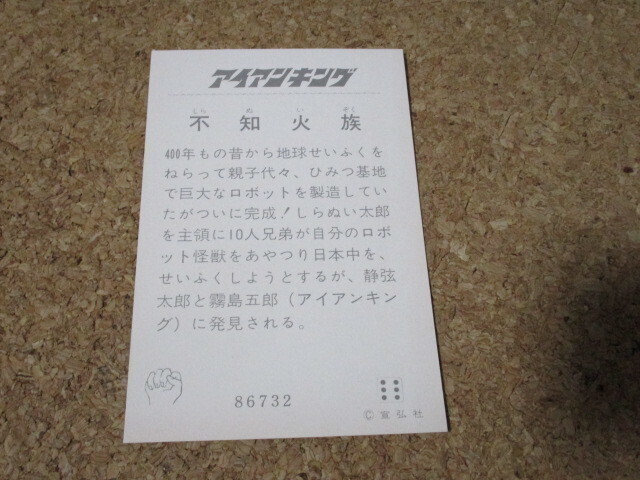 アイアンキング
しら ぬ い ぞく
不知火族
400年もの昔から地球せいふくを
ねらって親子代々、ひみつ基地
で巨大なロボットを製造してい
たがついに完成！しらぬい太郎
を主領に10人兄弟が自分のロボ
ット怪獣をあやつり日本中を、
せいふくしようとするが、静弦
太郎と霧島五郎（アイアンキン
グ）に発見される。
86732
©宣弘社